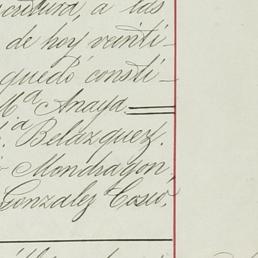 critura, a las
de hoy veinti-
quedó consti-
Mª Anaya
ª. Belázquez.
Mondragon,
Gonzalez Cosio,